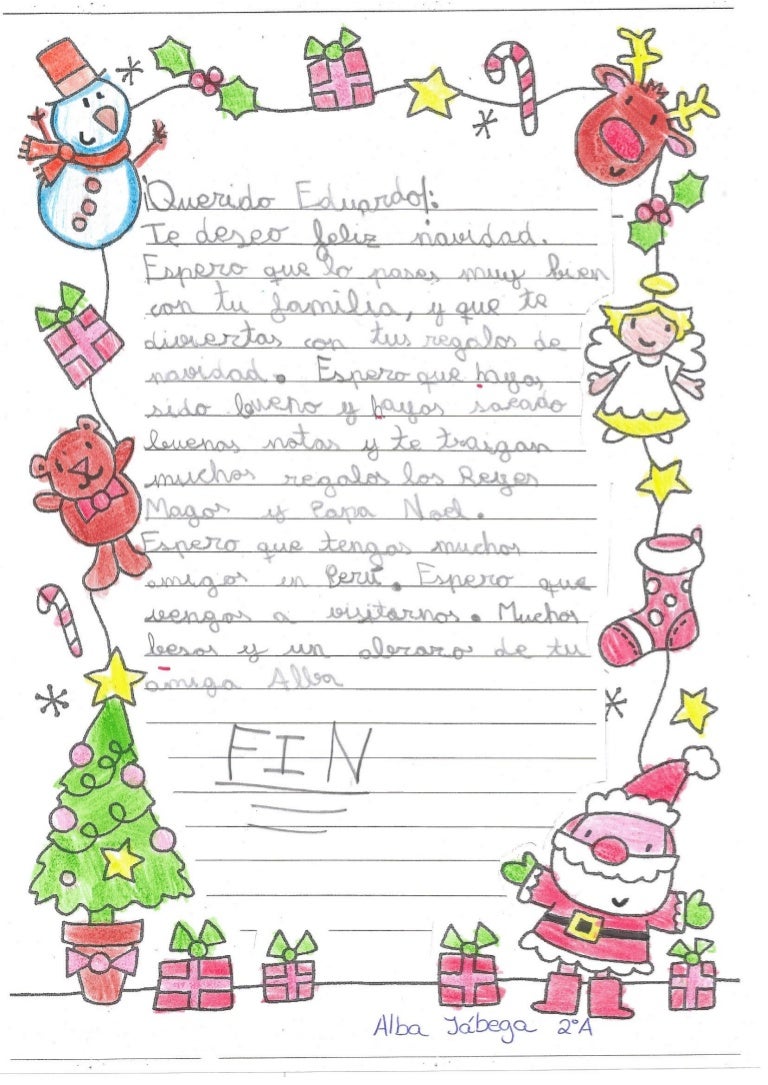 ¡Querido Eduardo!:
Te deseo feliz navidad.
Espero que lo pases muy bien
con tu familia, y que te
diviertas con tus regalos de
navidad. Espero que hayas
sido bueno y hayas sacado
buenas notas y te traigan
muchos regalos los Reyes
Magos y Papa Noel.
Espero que tengas muchos
amigos en Perú. Espero que
vengas a visitarnos. Muchos
besos y un abrazo de tu
amiga Alba
FIN
Alba Jábega 2ºA